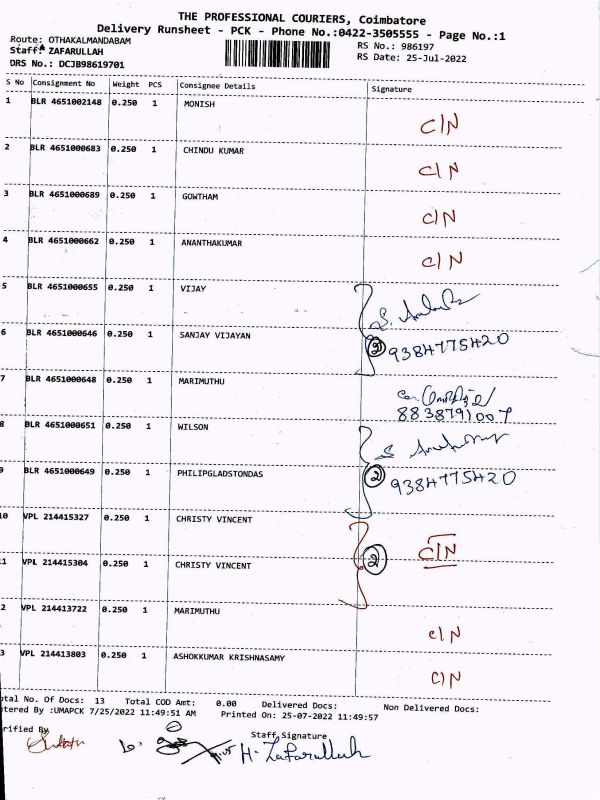 THE PROFESSIONAL COURIERS, Coimbatore
Delivery Runsheet - PCK - Phone No.:0422-3505555 - Page No.:1
Route: OTHAKALMANDABAM
Staff: ZAFARULLAH
DRS No.: DCJB98619701
RS No.: 986197
RS Date: 25-Jul-2022
S No Consignment No Weight PCS Consignee Details Signature
1 BLR 4651002148 0.250 1 MONISH C/N
2 BLR 4651000683 0.250 1 CHINDU KUMAR C/N
3 BLR 4651000689 0.250 1 GOWTHAM C/N
4 BLR 4651000662 0.250 1 ANANTHAKUMAR C/N
5 BLR 4651000655 0.250 1 VIJAY
6 BLR 4651000646 0.250 1 SANJAY VIJAYAN 2 9384775420
7 BLR 4651000648 0.250 1 MARIMUTHU
8838791007
8 BLR 4651000651 0.250 1 WILSON
9 BLR 4651000649 0.250 1 PHILIPGLADSTONDAS 2 9384775420
10 VPL 214415327 0.250 1 CHRISTY VINCENT C/N
1 VPL 214415304 0.250 1 CHRISTY VINCENT 2
2 VPL 214413722 0.250 1 MARIMUTHU C/N
3 VPL 214413803 0.250 1 ASHOKKUMAR KRISHNASAMY C/N
tal No. Of Docs: 13 Total COD Amt: 0.00 Delivered Docs: Non Delivered Docs:
tered By :UMAPCK 7/25/2022 11:49:51 AM Printed On: 25-07-2022 11:49:57
rified By Staff Signature
H. Zafarullah